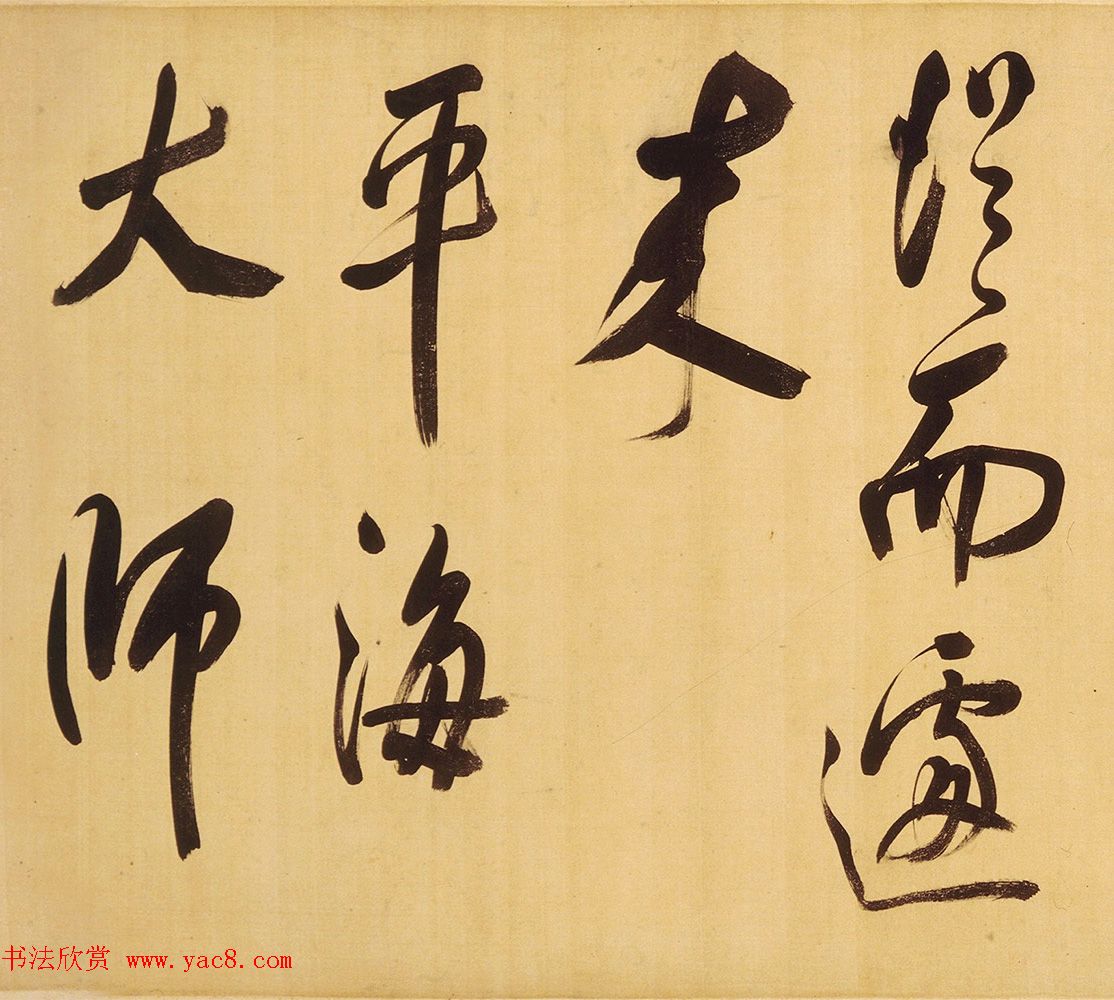 而遽
来
平海
大師
书法欣赏 www.yac8.com